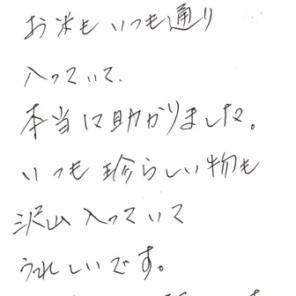 お米もいつも通り
入っていて、
本当に助かりました。
いつも珍らしい物も
沢山入っていて
うれしいです。